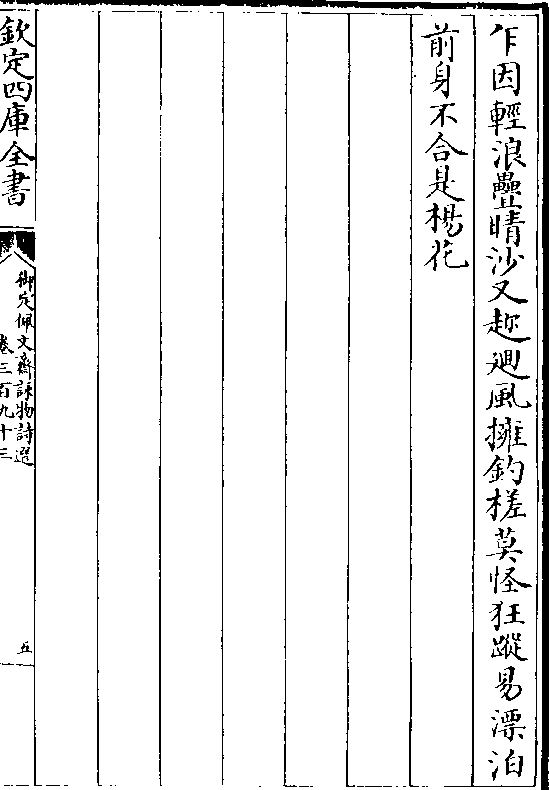 乍因輕浪疊晴沙又趂廻風擁釣槎莫怪狂蹤易漂泊
前身不合是楊花
欽定四庫全書
御定佩文齋詠物詩選
卷三百九十三
五